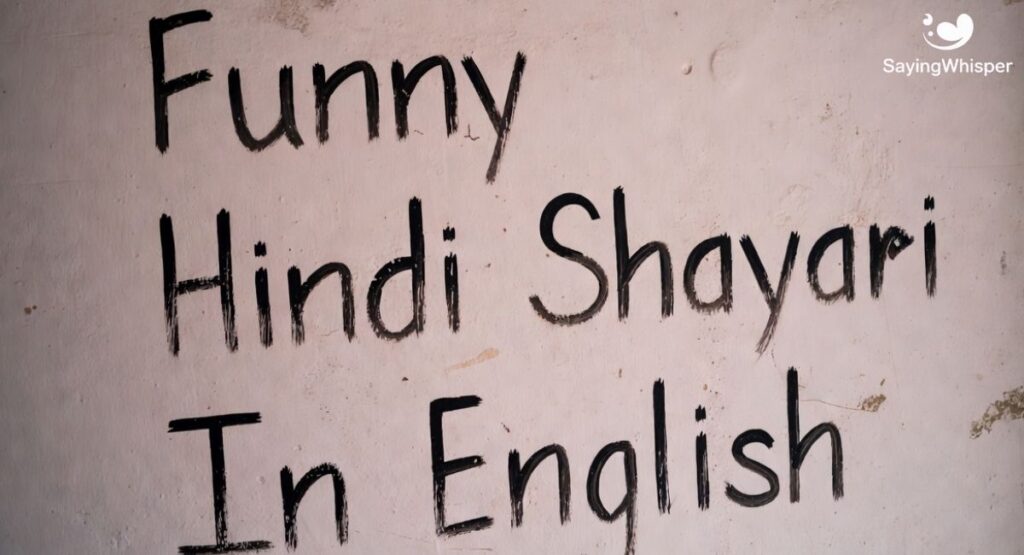 Funny
SayingWhisper
Hindi Shayari
In English